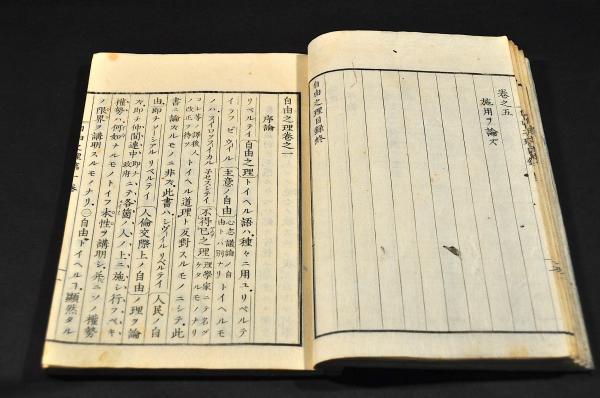 卷之五
施用ヲ論ズ
自由之理目録終
自由之理卷之一
序論
リベルテイ自由之理トイヘル語ハ、種々ニ用ユ、リベルテ
イヲフゼウイル主意ノ自由心志議論ノ自由トハ別ナリトイヘルモ
ノハ、フイロソフイカル子セスシテイ不得已之理理學家ニテ名ヅケタルモノナリ
トイヘル道理ト反對スルモノニシテ、此
書ニ論ズルモノニ非ズ、此書ハ、シヴーイル リベルテイ人民ノ自
由、即チソーシアル リベルテイ人倫交際上ノ自由ノ理ヲ論
ズ、即チ仲間連中即チ政府ニテ各箇ノ人ノ上ニ施シ行フベキ
權勢ハ、何如ナルモノトイフ本性ヲ講明シ、并ニソノ權勢
ノ限界ヲ講明スルモノナリ、自由トイヘルコ、顯然タル